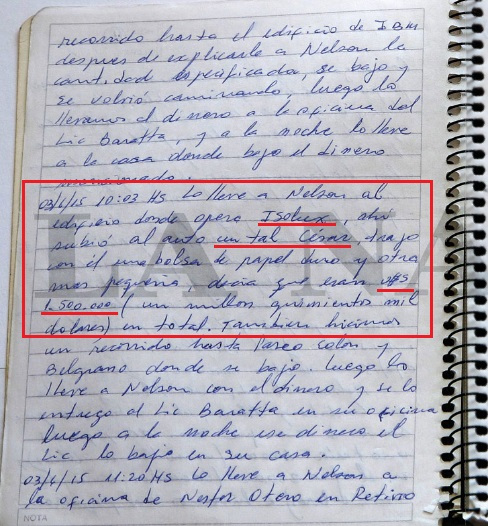 recorrido hasta el edificio de IBM
despues de explicarle a Nelson la
cantidad especificada, se bajo y
se volvió caminando, luego lo
llevamos el dinero a la oficina del
Lic Baratta, y a la noche lo lleve
a la casa donde bajo el dinero
mencionado.
03/6/15 10:03 HS. Lo lleve a Nelson al
edificio donde opera ISOLUX, ahi
subió al auto un tal César, trajo
con él una bolsa de papel duro y otra
mas pequeña, decia que eran U$S
1.500.000 (un millon quinientos mil
dolares) en total. Tambien hicimos
un recorrido hasta Paseo Colon y
Belgrano donde se bajo. Luego lo
lleve a Nelson con el dinero y se lo
entrego al Lic Baratta en su oficina
luego a la noche ese dinero el
Lic lo bajo en su casa.
03/6/15 11:20 HS Lo lleve a Nelson a
la oficina de Nestor Otero en Retiro
NOTA
LA NA